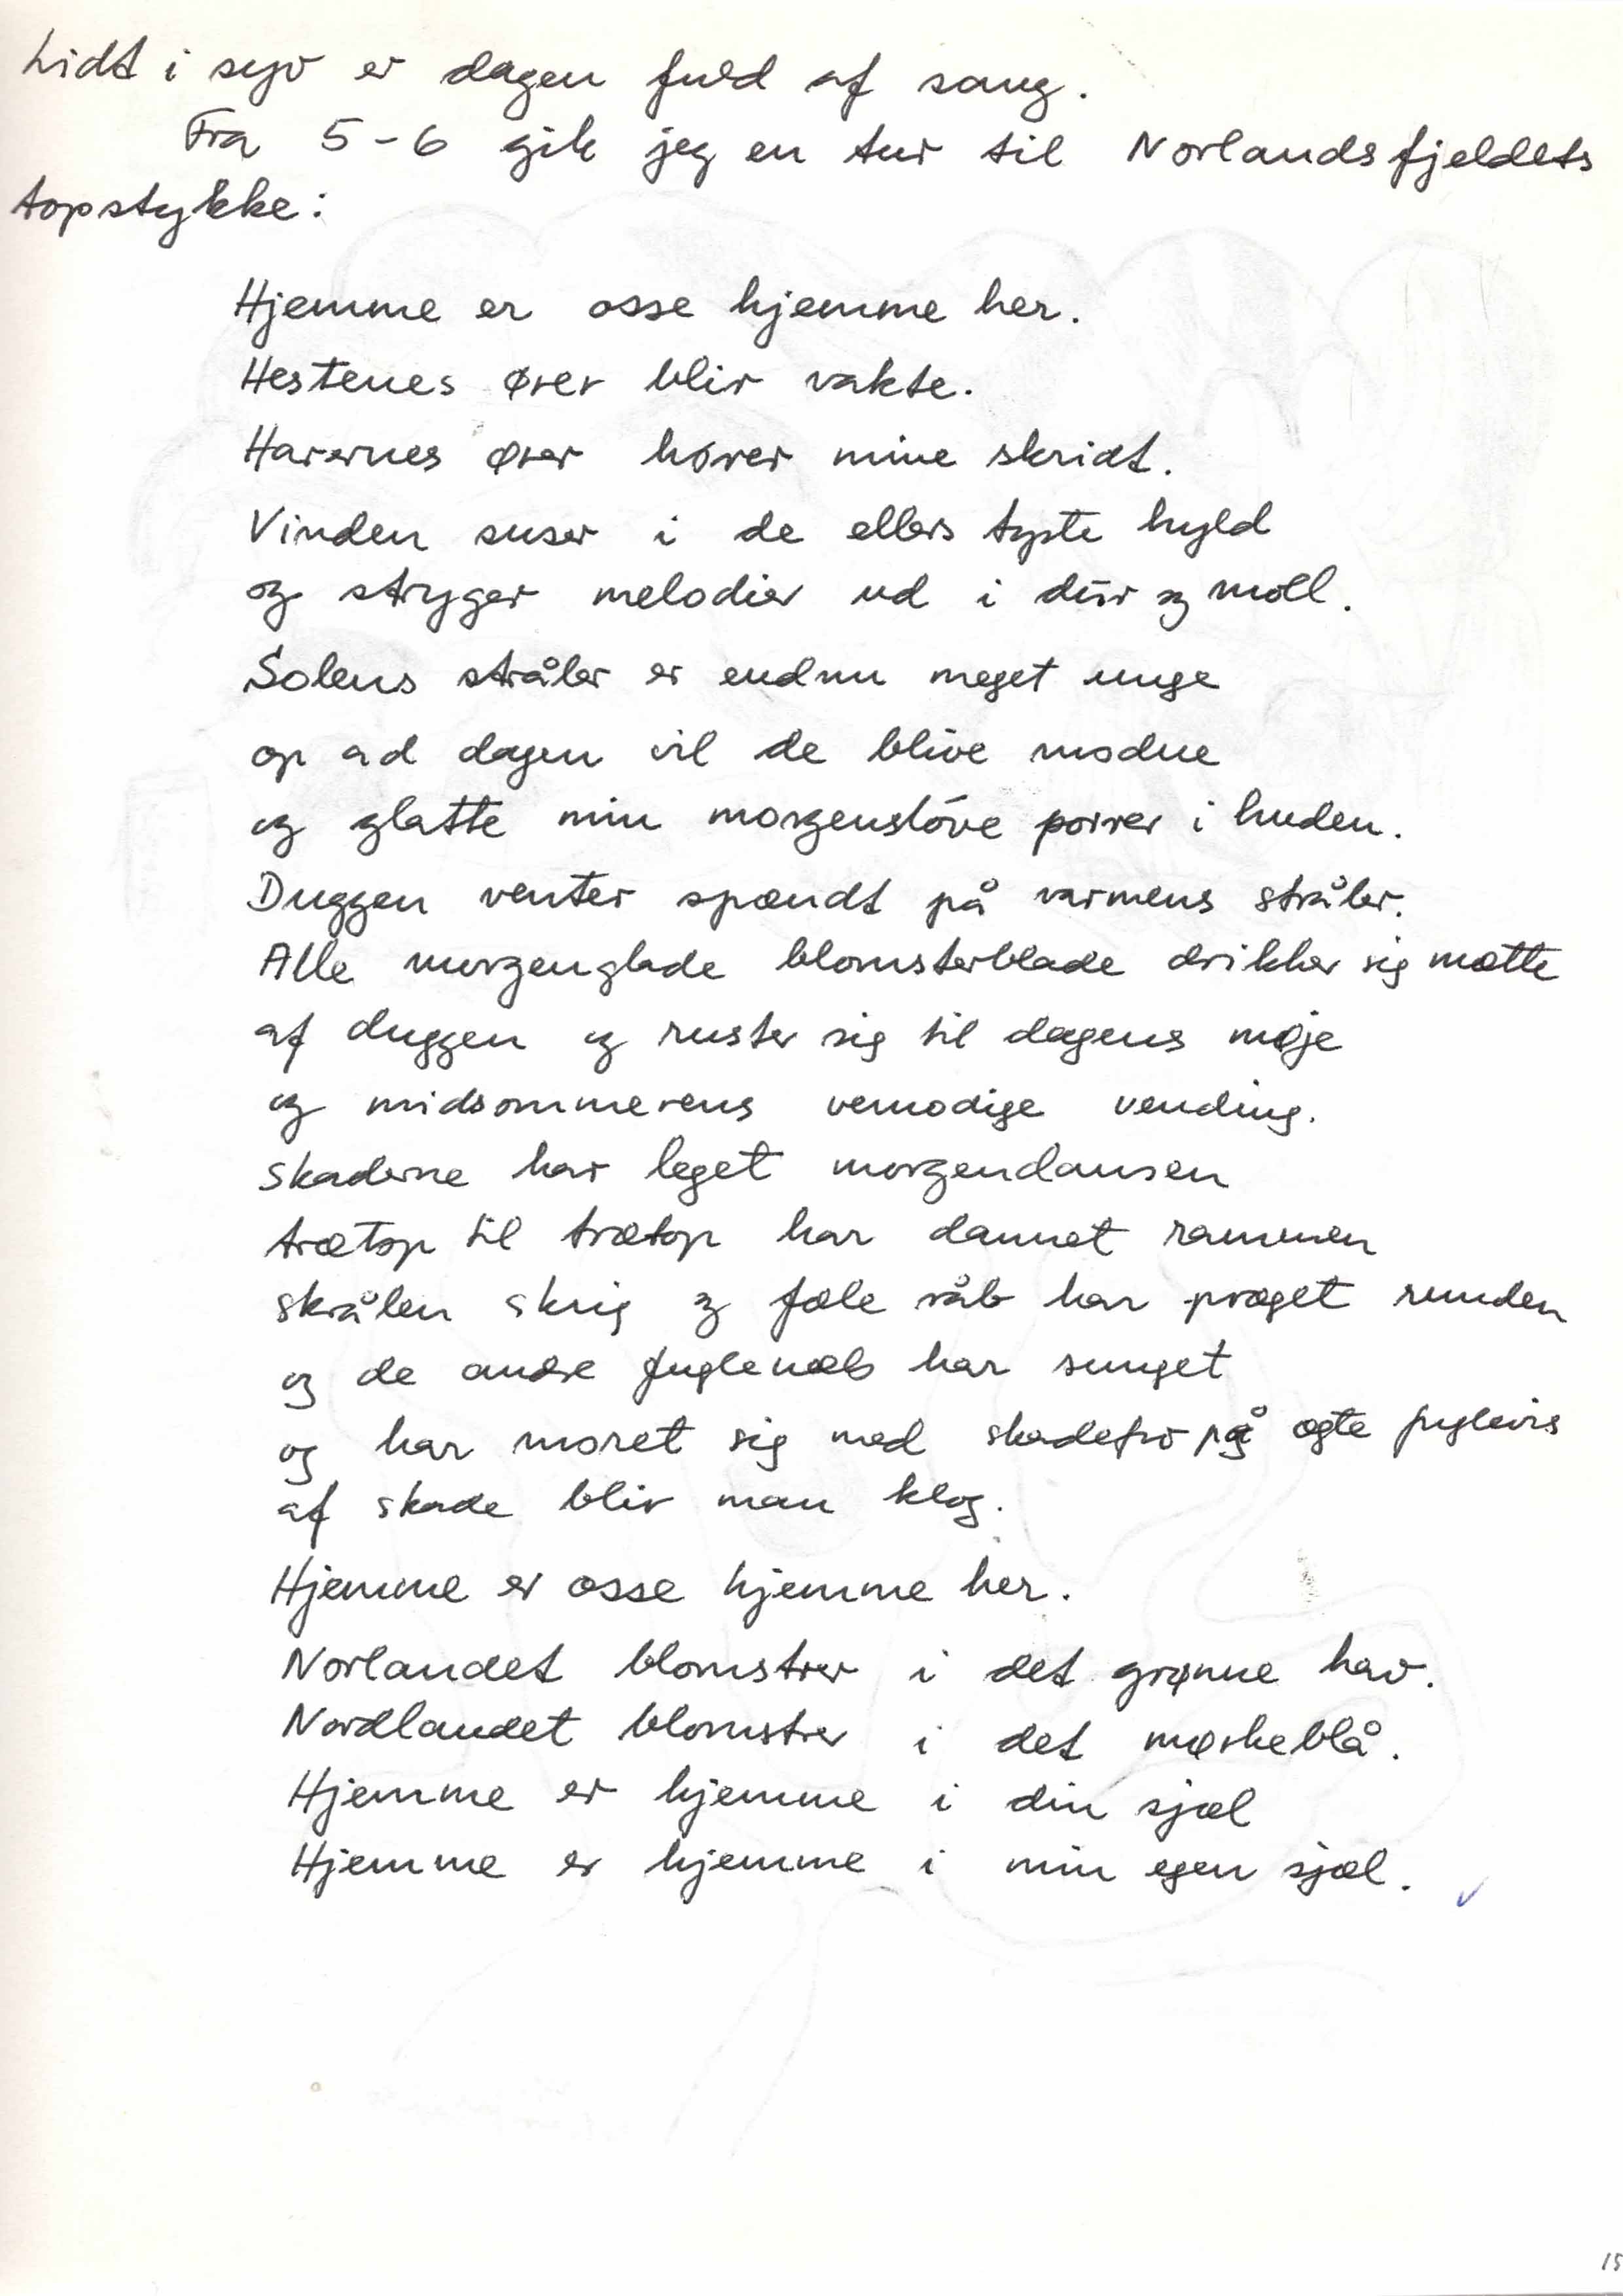 Lidt i syv er dagen fuld af sang.
Fra 5-6 gik jeg en tur til Norlandsfjeldets
topstykke:
Hjemme er osse hjemme her.
Hestenes ører blir vakte.
Harernes ører hører mine skridt.
Vinden suser i de ellers tyste hyld
og stryger melodier ud i dur og moll.
Solens stråler er endnu meget unge
op ad dagen vil de blive modne
og glatte min morgensløve porrer i huden.
Duggen venter spændt på varmens stråler.
Alle morgenglade blomsterblade drikker sig mætte
af duggen og ruster sig til dagens møje
og midsommerens vemodige vending.
Skaderne har leget morgendansen
trætop til trætop har dannet rammen
skrålen skrig og fæle råb har præget runden
og de andre fuglenæb har sunget
og har moret sig med skadefro på ægte fuglevis
af skade blir man klog.
Hjemme er osse hjemme her.
Norlandet blomstrer i det grønne hav.
Nordlandet blomstrer i det mørkeblå.
Hjemme er hjemme i din sjæl
Hjemme er hjemme i min egen sjæl.
15